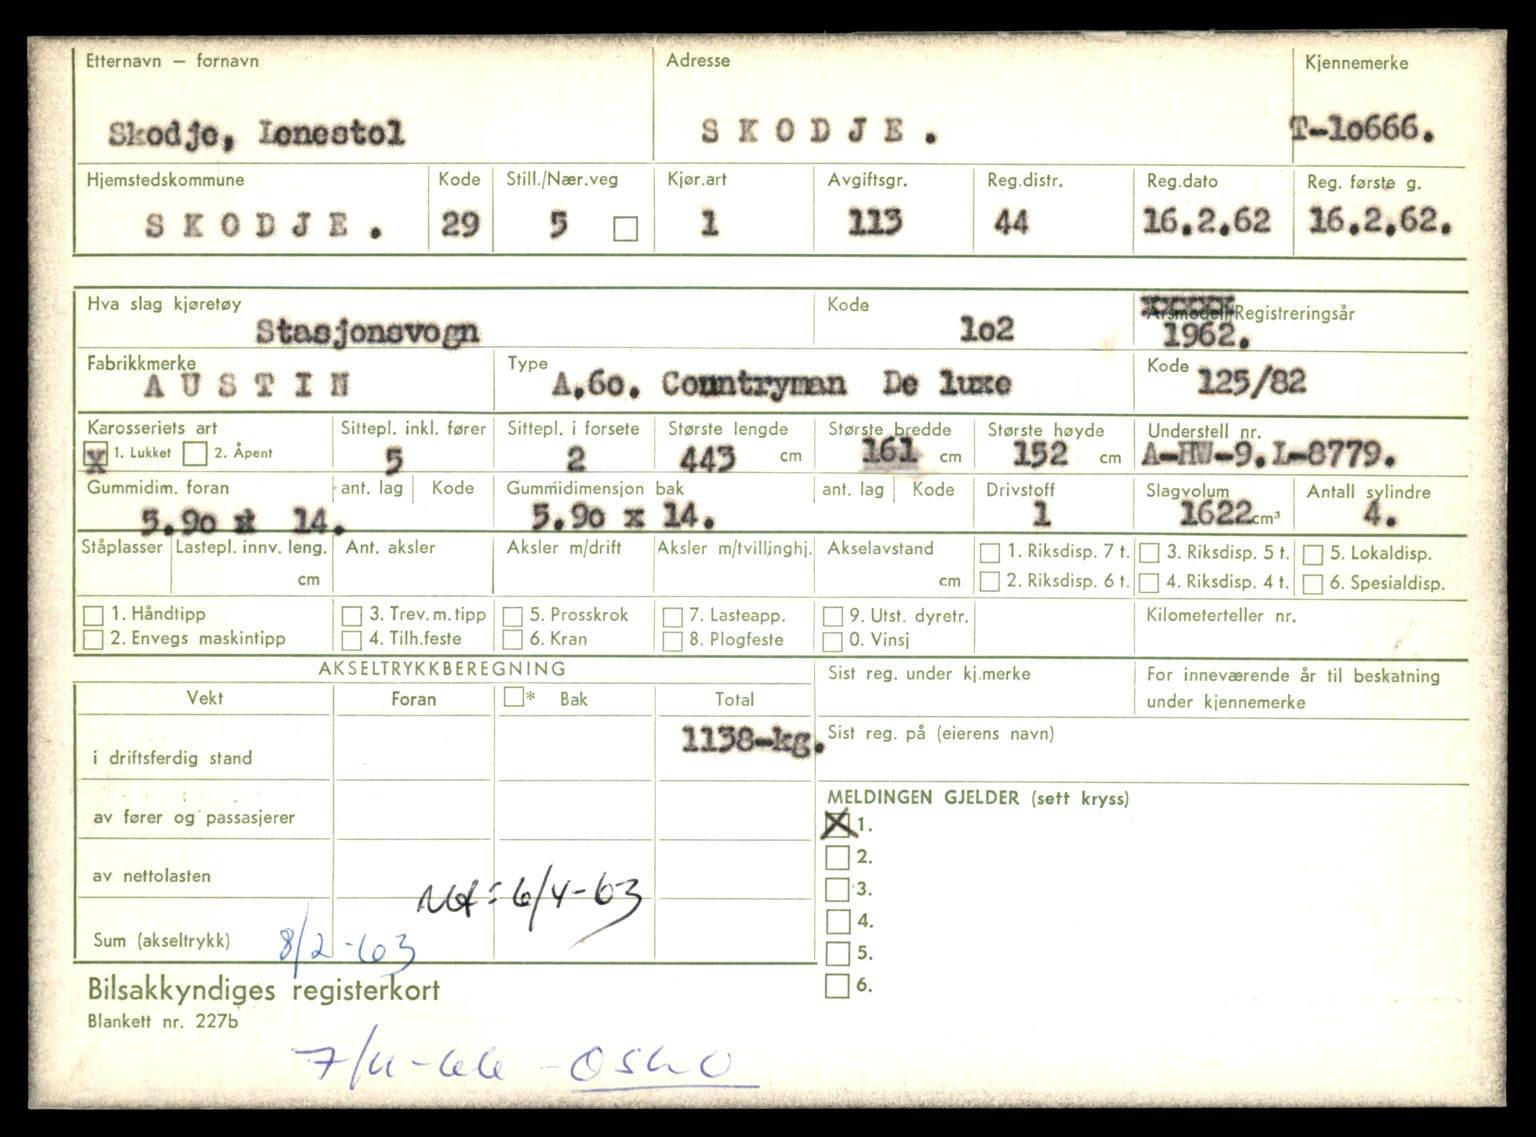 Etternavn — fornavn Adresse Kjennemerke
Skodje, Lenestol S K O D J E . T-1o666.
Hjemstedskommune Kode Still./Nær.veg Kjør.art Avgiftsgr. Reg.distr. Reg.dato Reg. første g.
S K O D J E . 29 5 1 113 44 16.2.62 16.2.62.
Hva slag kjøretøy Kode Årsmodell/Registreringsår
Stasjonsvogn 1o2 1962.
Fabrikkmerke Type Kode
A U S T I N A.6o. Countryman De luxe 125/82
Karosseriets art Sittepl. inkl. fører Sittepl. i forsete Største lengde Største bredde Største høyde Understell nr.
x 1. Lukket 2. Åpent 5 2 443 cm 161 cm 152 cm A-HW-9.L-8779.
Gummidim. foran ant. lag Kode Gummidimensjon bak ant. lag Kode Drivstoff Slagvolum Antall sylindre
5.9o x 14. 5.9o x 14. 1 1622 cm³ 4.
Ståplasser Lastepl. innv. leng. Ant. aksler Aksler m/drift Aksler m/tvillinghj. Akselavstand 1. Riksdisp. 7 t. 3. Riksdisp. 5 t. 5. Lokaldisp.
cm cm 2. Riksdisp. 6 t. 4. Riksdisp. 4 t. 6. Spesialdisp.
1. Håndtipp 3. Trev. m. tipp 5. Prosskrok 7. Lasteapp. 9. Utst. dyretr. Kilometerteller nr.
2. Envegs maskintipp 4. Tilh.feste 6. Kran 8. Plogfeste 0. Vinsj
AKSELTRYKKBEREGNING Sist reg. under kj.merke For inneværende år til beskatning
Vekt Foran * Bak Total under kjennemerke
i driftsferdig stand 1138-kg. Sist reg. på (eierens navn)
av fører og passasjerer MELDINGEN GJELDER (sett kryss)
X 1.
2.
av nettolasten 3.
6/4-63 4.
Sum (akseltrykk) 8/2-63 5.
Bilsakkyndiges registerkort 6.
Blankett nr. 227b
7/11-66 - Oslo